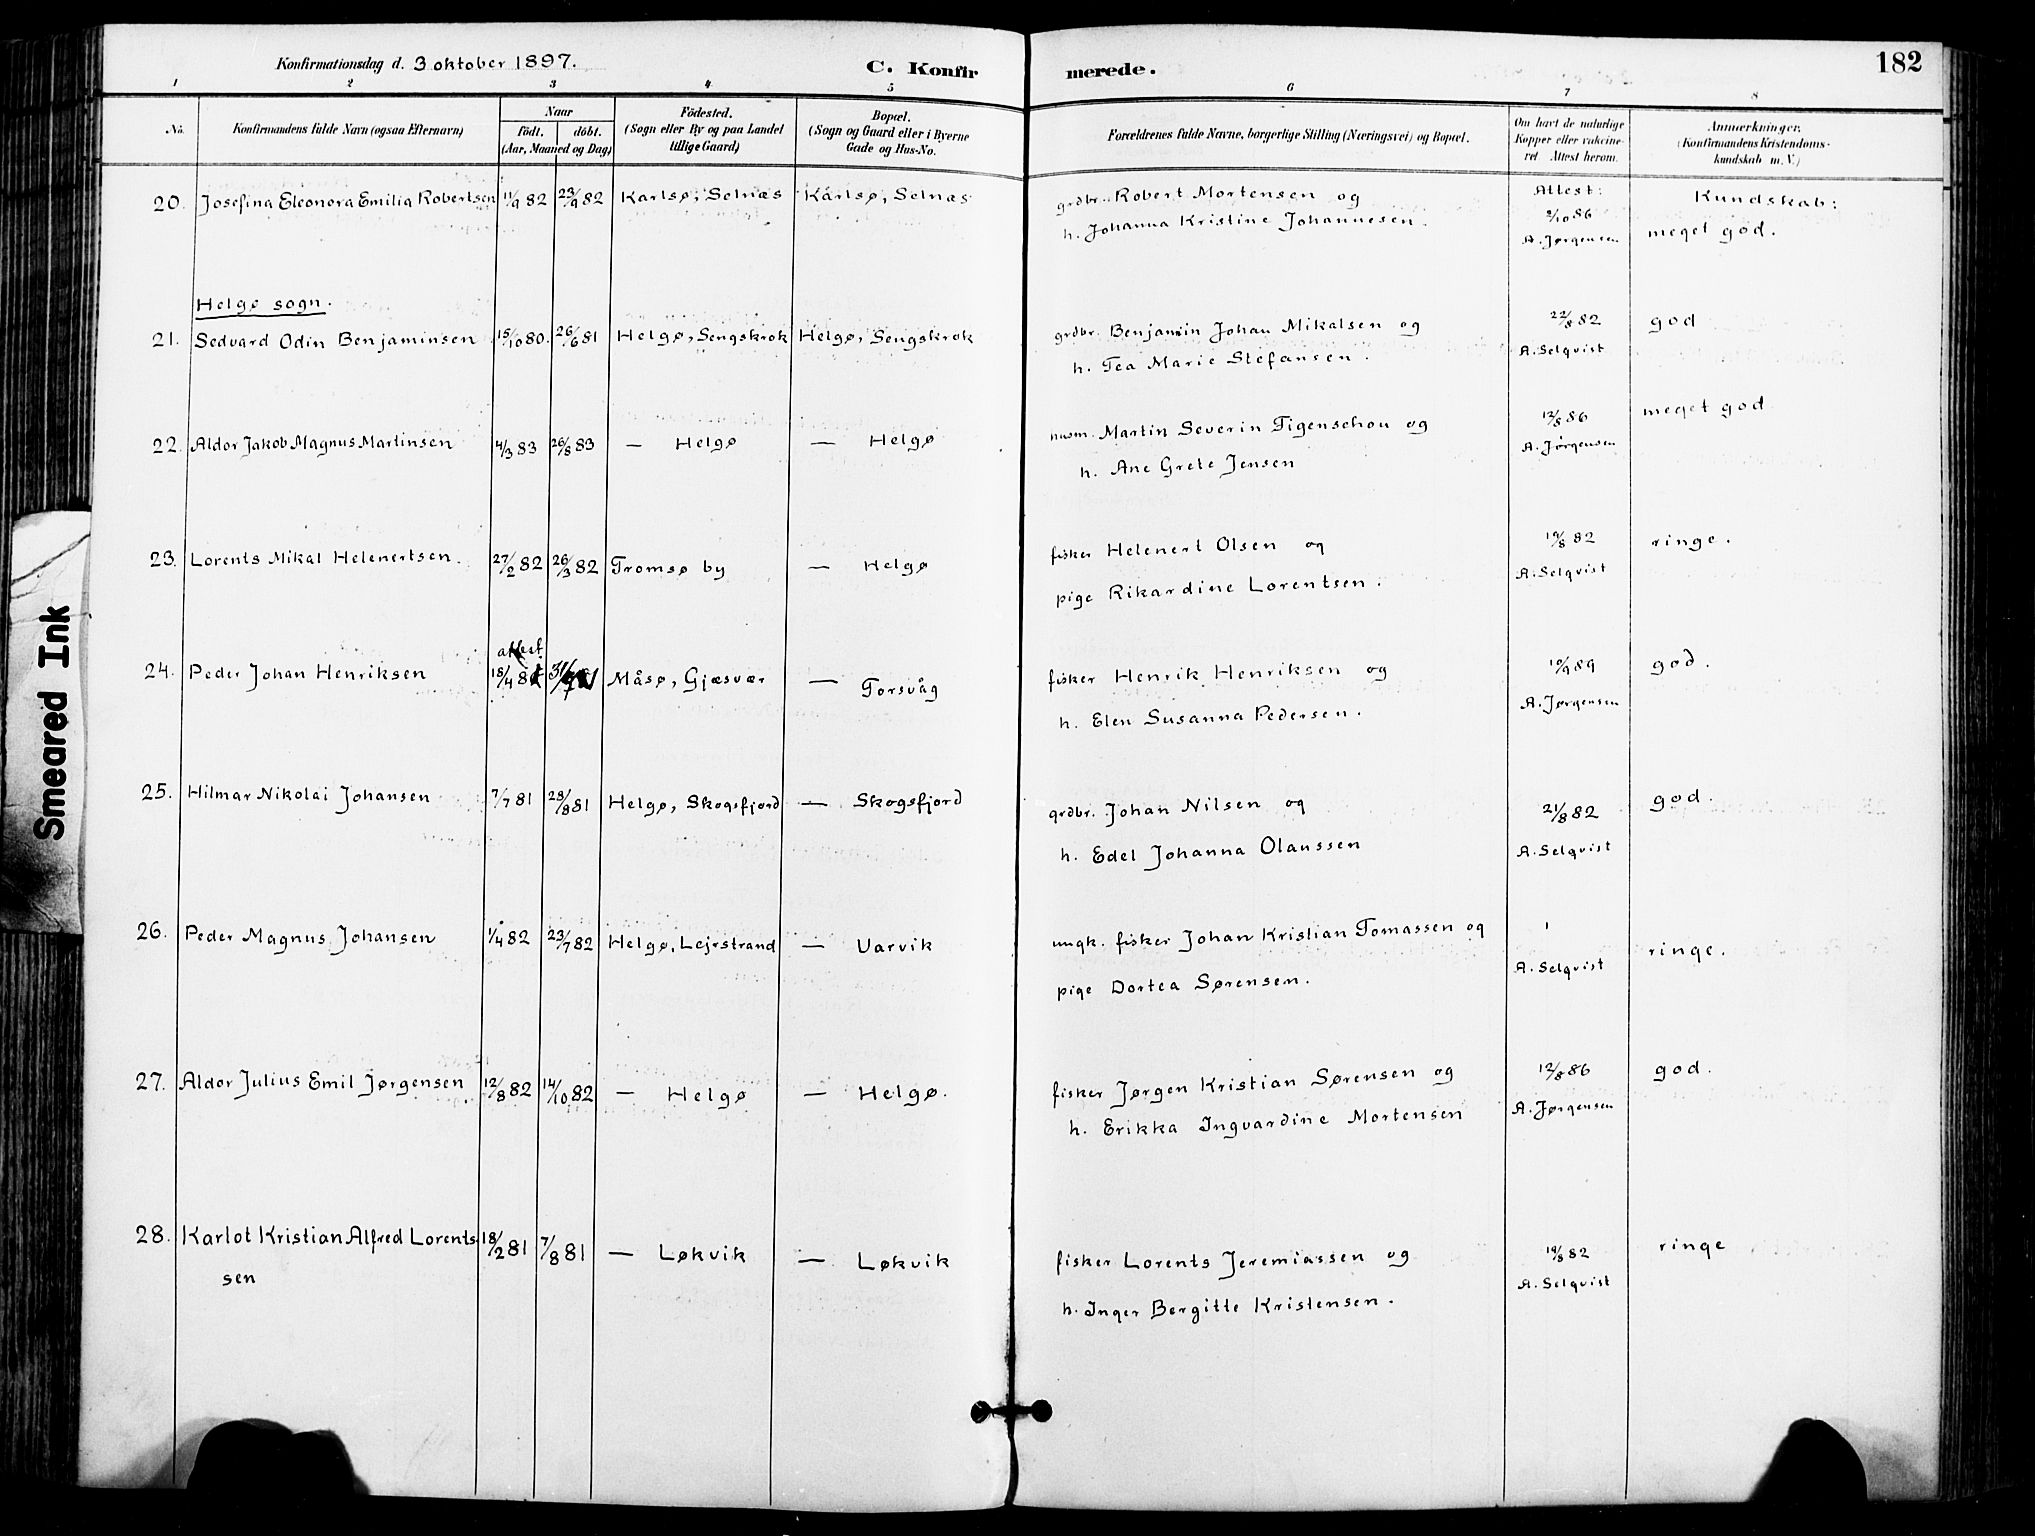 Konfirmationsdag d. 3 oktober 1897. C. Konfir merede. 182
1 2 3 4 5 6 7 8
No. Konfirmandens fulde Navn (ogsaa Efternavn) Naar födt. döbt. (Aar, Maaned og Dag) Födested. (Sogn eller By og paa Landet tillige Gaard) Bopæl. (Sogn og Gaard eller i Byerne Gade og Hus-No. Forældrenes fulde Navne, borgerlige Stilling (Næringsvei) og Bopæl. Om havt de naturlige Kopper eller vakcineret Attest herom. Anmærkninger. (Konfirmandens Kristendomskundskab m. V.)
20. Josefina Eleonora Emilia Robertsen 11/9 82 23/9 82 Karlsø, Selnæs Karlsø, Selnæs grdbr. Robert Mortensen og Attest: Kundskab:
h. Johanna Kristine Johannesen. 2/10 86 A. Jørgensen meget god.
Helgø sogn.
21. Sedvard Odin Benjaminsen 15/10 80. 26/6 81 Helgø, Sengskrok Helgø, Sengskrok grdbr. Benjamin Johan Mikalsen og 22/8 82 god
h. Tea Marie Stefansen. A. Selqvist
22. Aldor Jakob Magnus Martinsen 4/3 83 26/8 83 — Helgø — Helgø husm. Martin Severin Figenschou og 12/8 86 meget god
h. Ane Grete Jensen A. Jørgensen
23. Lorents Mikal Helenertsen. 27/2 82 26/3 82 Tromsø by — Helgø fisker Helenert Olsen og 19/8 82 ringe.
pige Rikardine Lorentsen. A. Selqvist
attest.
24. Peder Johan Henriksen 18/4 Måsø, Gjæsvær — Torsvåg fisker Henrik Henriksen og 10/9 89 god.
h. Elen Susanna Pedersen. A. Jørgensen
25. Hilmar Nikolai Johansen 7/7 81 28/8 81 Helgø, Skogsfjord — Skogsfjord grdbr. Johan Nilsen og 21/8 82 god.
h. Edel Johanna Olaussen A. Selqvist
26. Peder Magnus Johansen 1/4 82 23/7 82 Helgø, Lejrstrand — Uarvik ungk. fisker Johan Kristian Tomassen og ringe.
pige Dortea Sørensen. A. Selqvist
27. Aldor Julius Emil Jørgensen 12/8 82 14/10 82 — Helgø — Helgø. fisker Jørgen Kristian Sørensen og 12/8 86 god.
h. Erikka Ingvardine Mortensen A. Jørgensen
28. Karlot Kristian Alfred Lorents 18/2 81 7/8 81 — Løkvik — Løkvik fisker Lorents Jeremiassen og 19/8 82 ringe
sen h. Inger Bergitte Kristensen. A. Selqvist
Smeared Ink